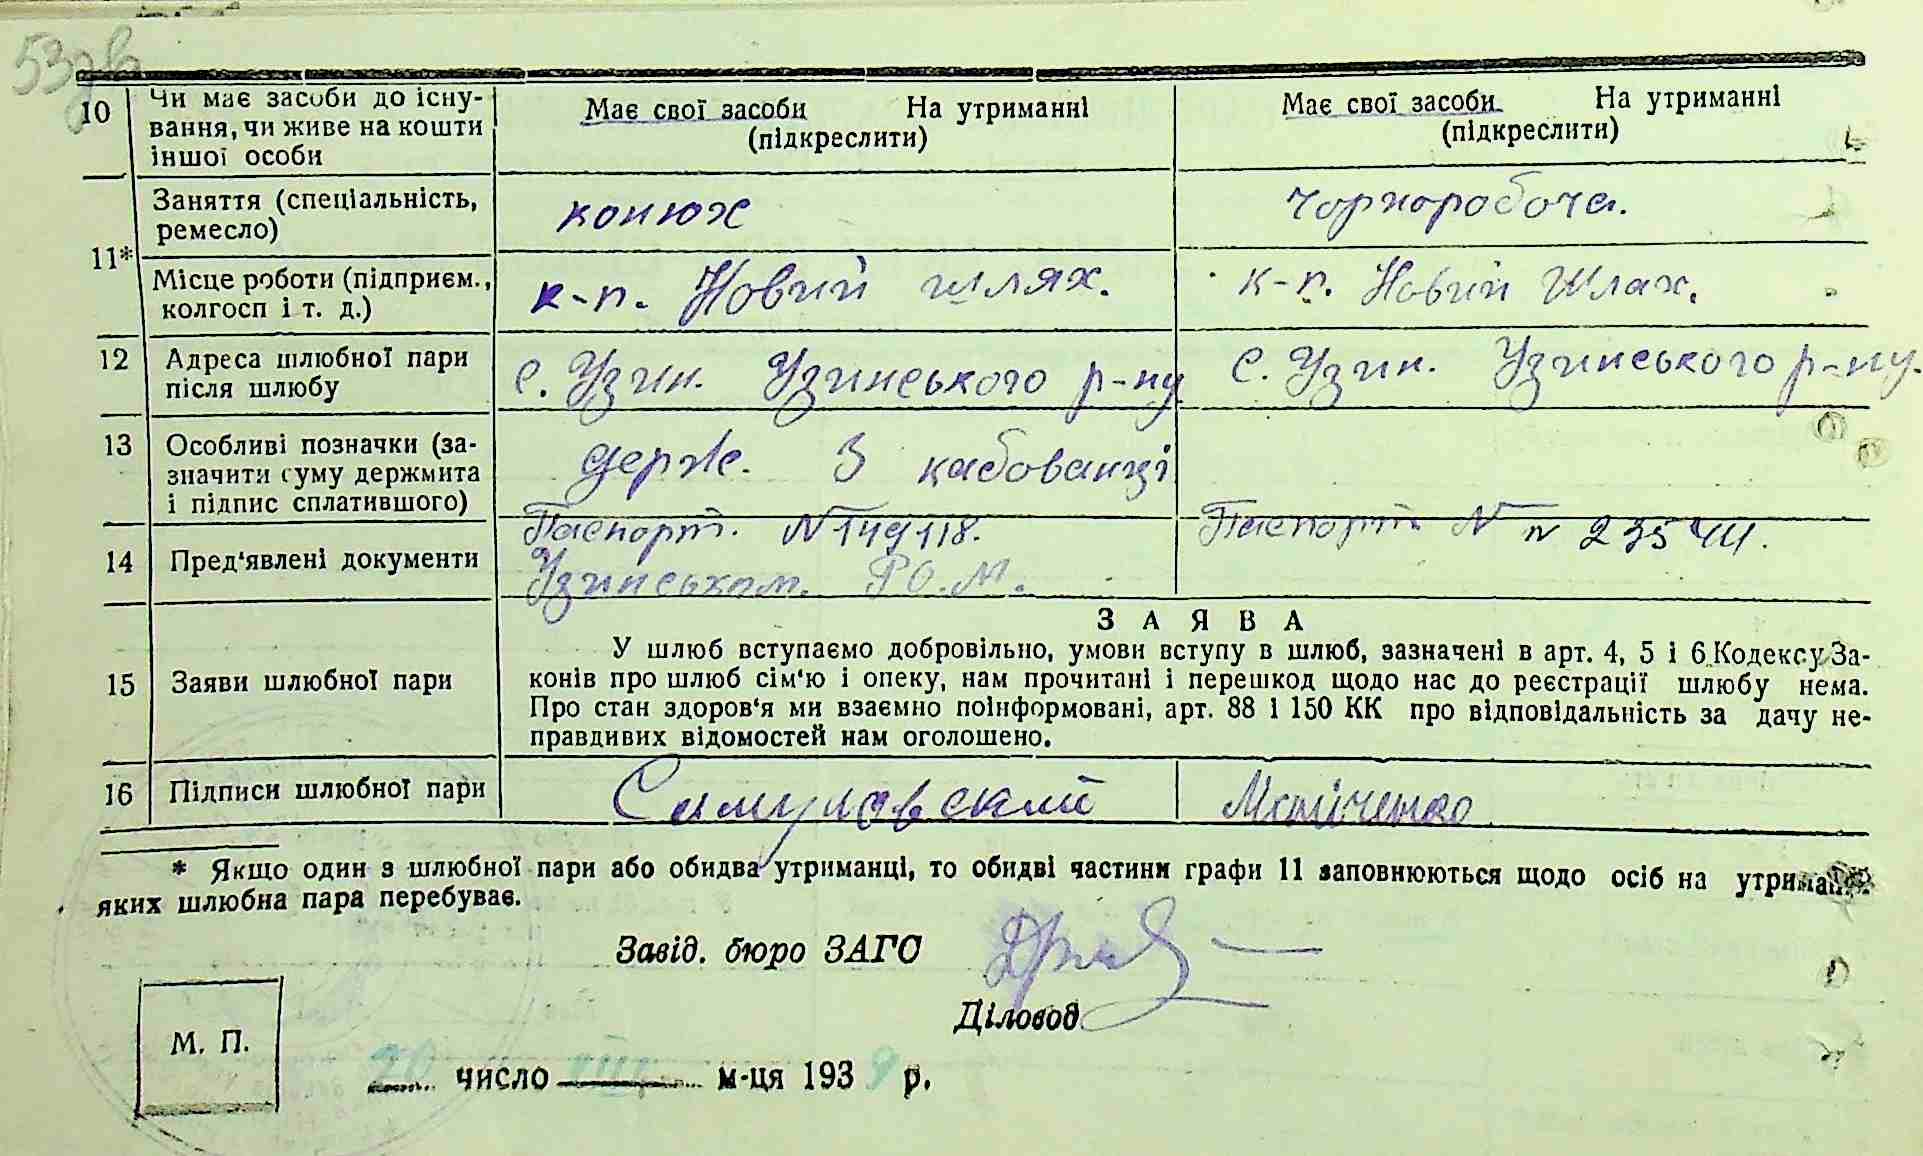 53
10 Чи має засоби до існу-
вання, чи живе на кошти
іншої особи
Має свої засоби На утриманні
(підкреслити)
Має свої засоби На утриманні
(підкреслити)
11*
Заняття (спеціальність,
ремесло)
конюх
чорноробоча.
Місце роботи (підприєм.,
колгосп і т. д.)
к-п. Новий шлях.
к-п. Новий Шлях.
12 Адреса шлюбної пари
після шлюбу
с. Узин. Узинського р-ну
с. Узин. Узинського р-ну.
13 Особливі позначки (за-
значити суму держмита
і підпис сплатившого)
держ. 3
14 Пред'явлені документи
Паспорт. N 149118.
Узинськом. Р.О.М.
Паспорт N
15 Заяви шлюбної пари
ЗАЯВА
У шлюб вступаємо добровільно, умови вступу в шлюб, зазначені в арт. 4, 5 і 6 Кодексу За-
конів про шлюб сім'ю і опеку, нам прочитані і перешкод щодо нас до реєстрації шлюбу нема.
Про стан здоров'я ми взаємно поінформовані, арт. 88 і 150 КК про відповідальність за дачу не-
правдивих відомостей нам оголошено.
16 Підписи шлюбної пари
* Якщо один з шлюбної пари або обидва утриманці, то обидві частини графи 11 заповнюються щодо осіб на утриманні
яких шлюбна пара перебуває.
Завід. бюро ЗАГС
Діловод
М. П.
20 число VIII м-ця 1939 р.